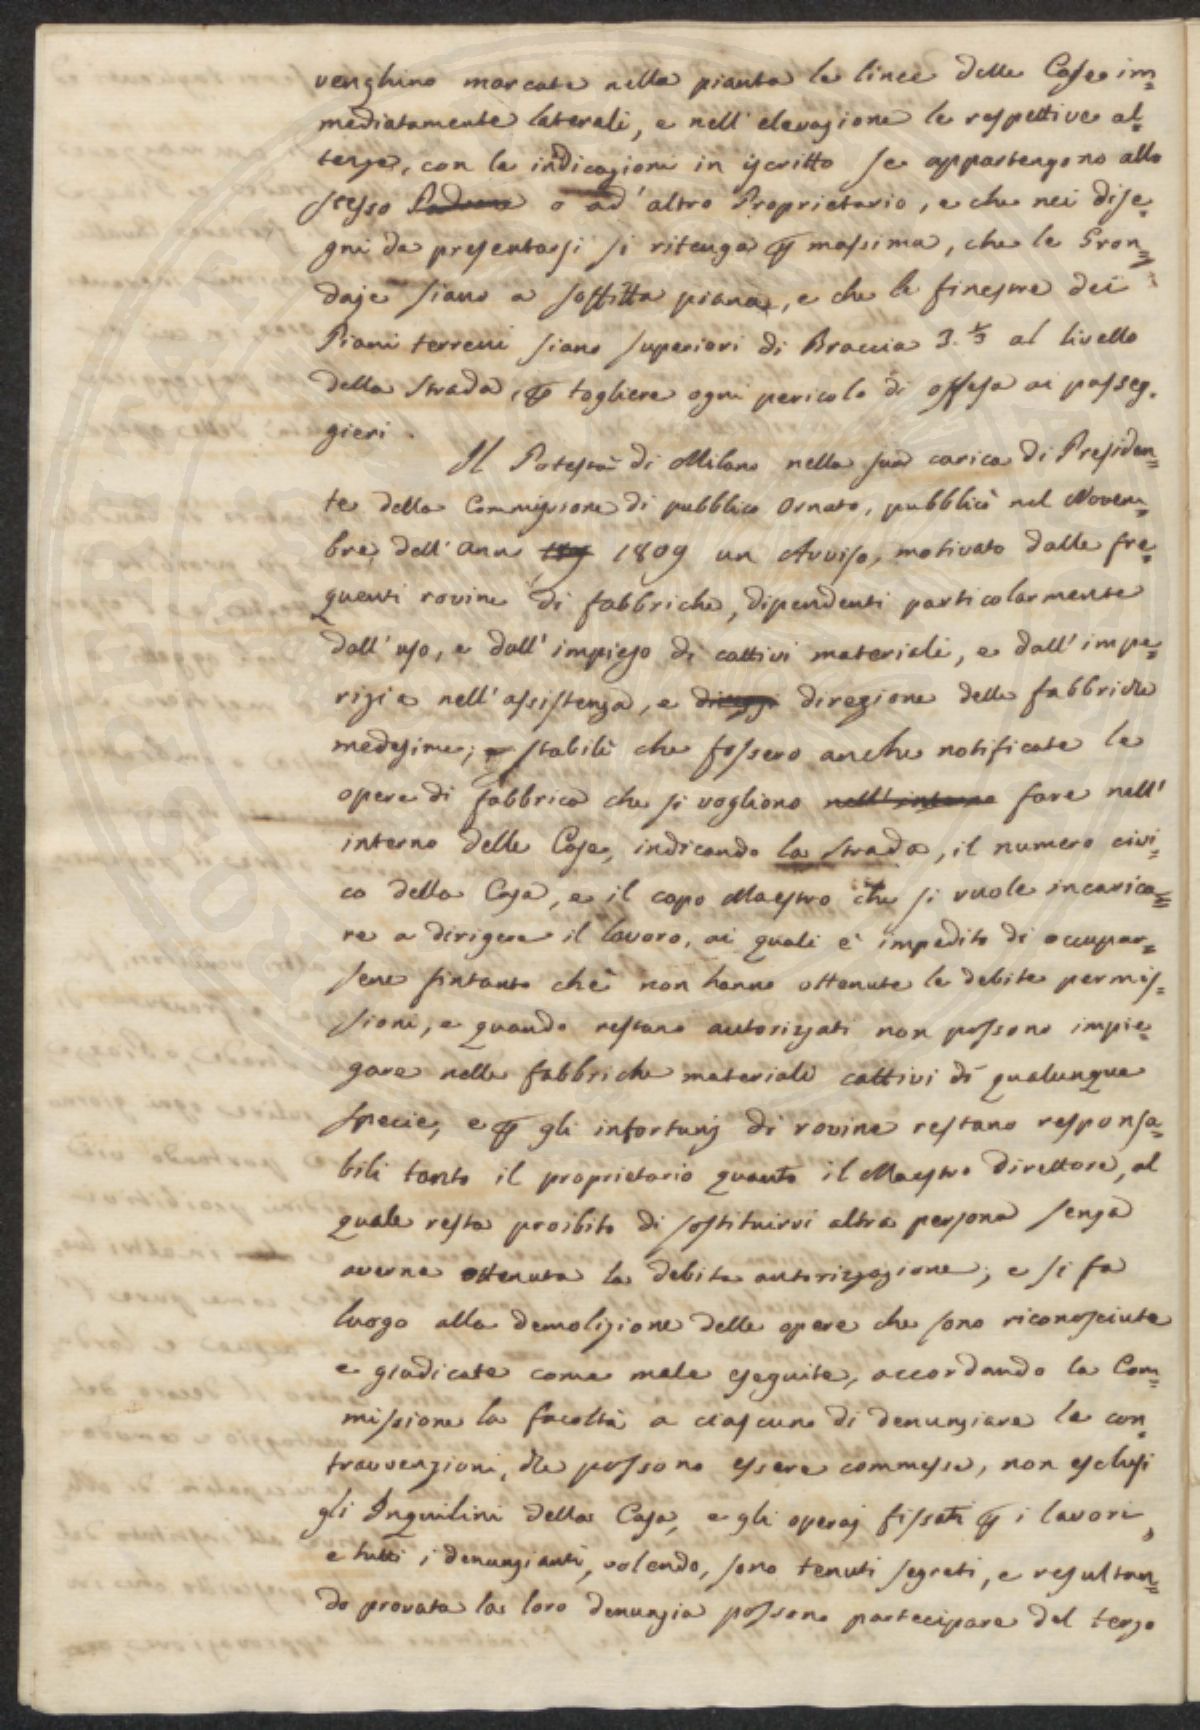 venghino marcate nella pianta le linee delle Case im=
mediatamente laterali, e nell'elevazione le respettive al=
tezze, con la indicazione in iscritto se appartengono allo
stesso Padrone o ad altro Proprietario, e che nei dise=
gni da presentarsi si ritenga ꝑ massima, che le Gron=
daje siano a soffitta piana, e che le finestre dei
Piani terreni siano superiori di Braccia 3. al livello
della strada, ꝑ togliere ogni pericolo di offesa ai passeg.
gieri.
Il Potestà di Milano nella sua carica di Presiden=
te della Commissione di pubblico Ornato, pubblicò nel Novem=
bre dell'anno 1809 un Avviso, motivato dalle fre=
quenti rovine di fabbriche, dipendenti particolarmente
dall'uso, e dall'impiego di cattivi materiali, e dall'impe=
rizia nell'assistenza, e direzione delle fabbriche
medesime; e stabilì che fossero anche notificate le
opere di fabbrica che si vogliono nell'interno fare nell'
interno delle Case, indicando la strada, il numero civi=
co della Casa, e il capo Maestro che si vuole incarica=
re a dirigere il lavoro, ai quali è impedito di occupar=
sene fintanto chè non hanno ottenute le debite permis=
sioni, e quando restano autorizzati non possono impie=
gare nelle fabbriche materiali cattivi di qualunque
specie, e ꝑ gli infortunj di rovine restano responsa=
bili tanto il proprietario quanto il Maestro direttore, al
quale resta proibito di sostituirvi altra persona senza
averne ottenuta la debita autorizzazione; e si fa
luogo alla demolizione delle opere che sono riconosciute
e giudicate come male eseguite, accordando la Com=
missione la facoltà a ciascuno di denunziare le con=
travvenzioni, che possono essere commesse, non esclusi
gli Inquilini della Casa, e gli operaj fissati ꝑ i lavori,
e tutti i denunzianti, volendo, sono tenuti segreti, e resultan=
do provata la loro denunzia possono partecipare del terzo